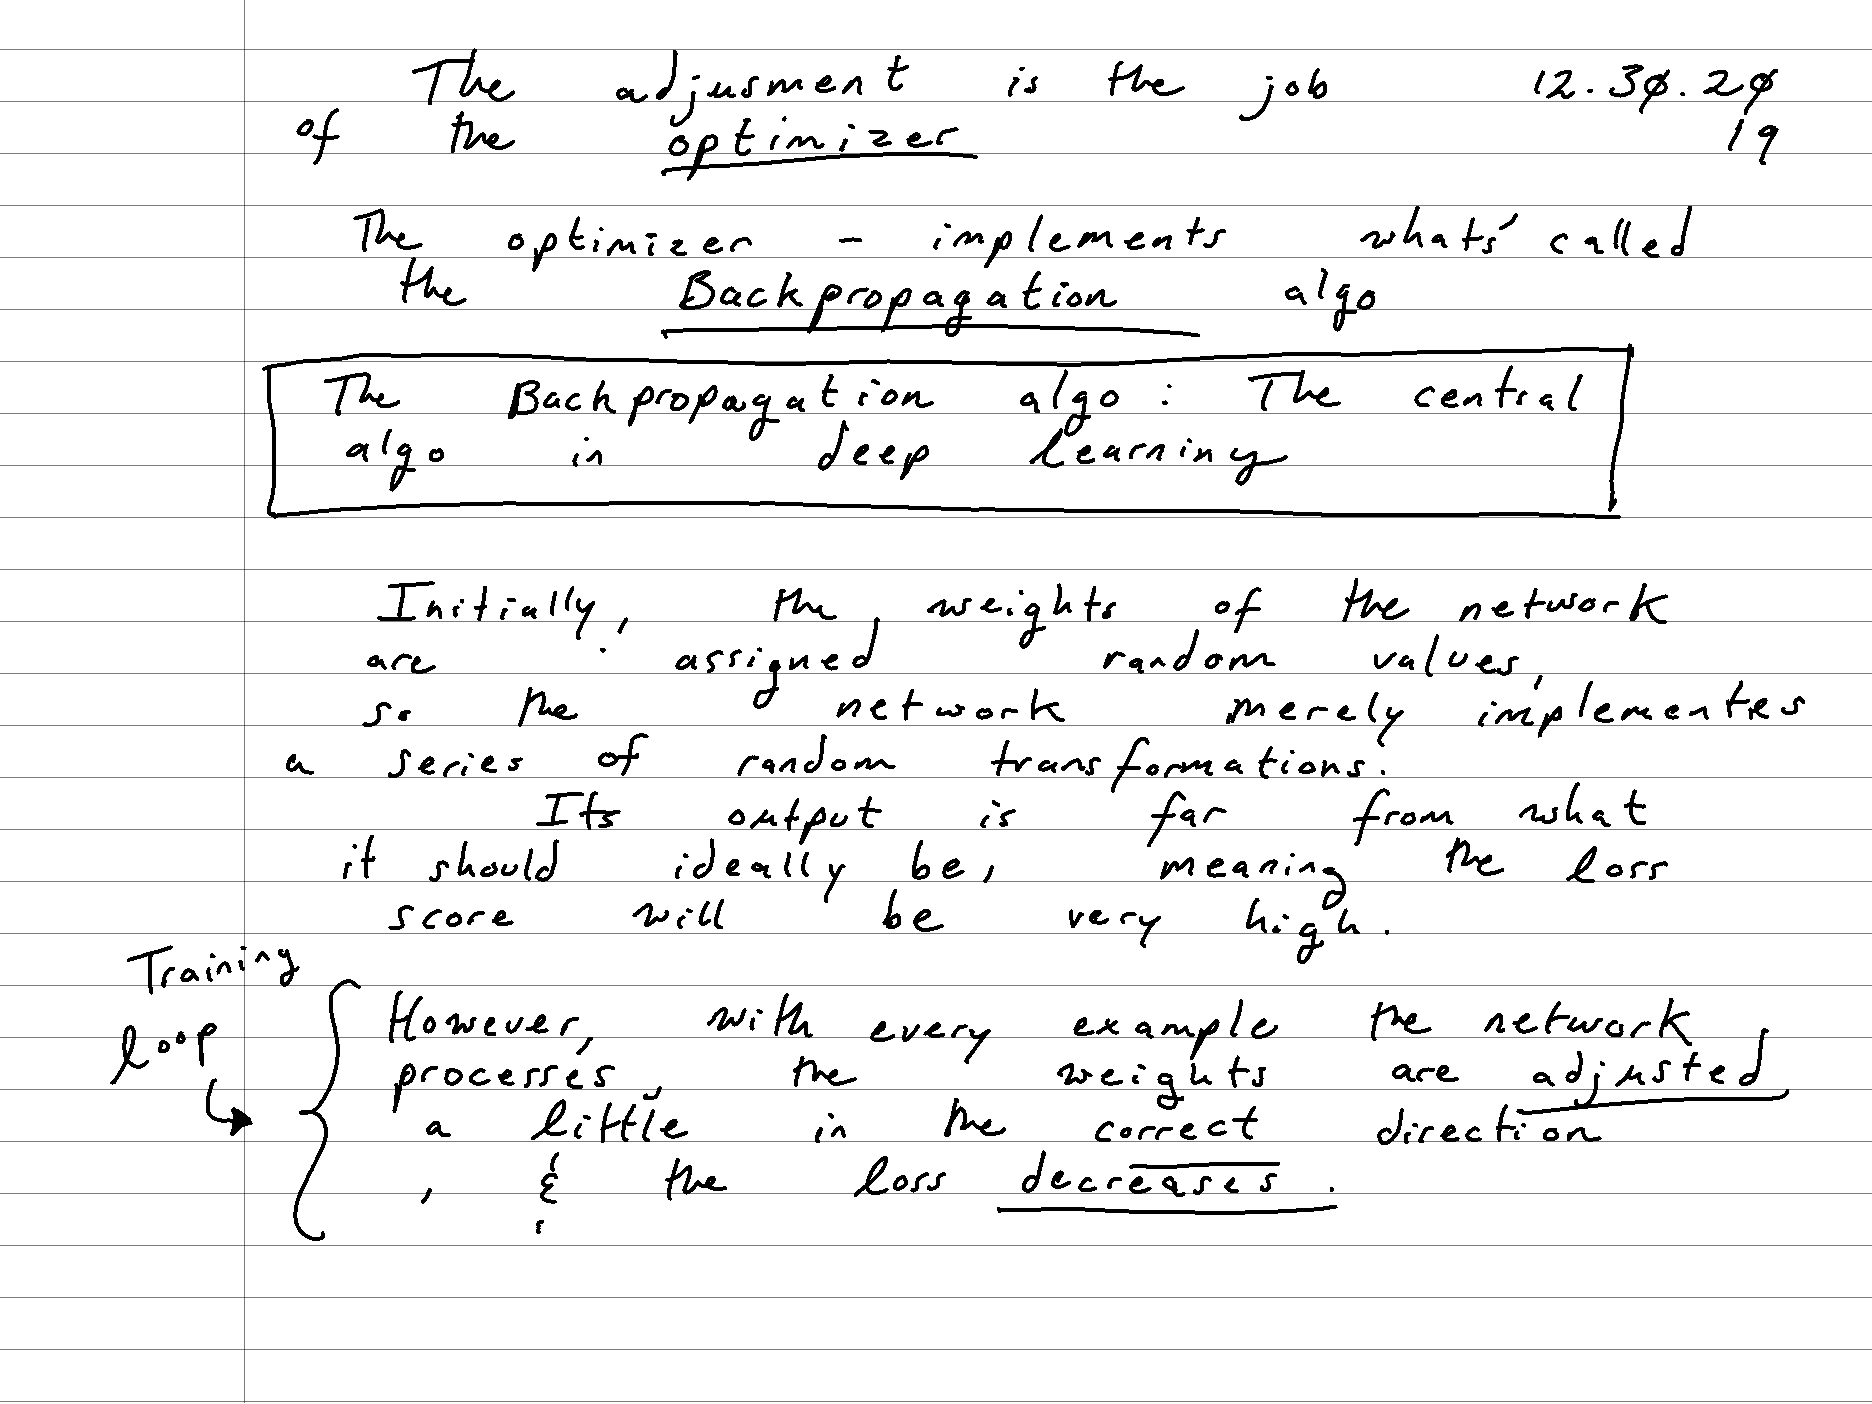 The adjusment is the job 12.30.20
of the optimizer 19
The optimizer - implements whats' called
the Backpropagation algo
The Backpropagation algo: The central
algo in deep learning
Initially, the weights of the network
are assigned random values,
so the network merely implementes
a series of random transformations.
Its output is far from what
it should ideally be, meaning the loss
score will be very high.
Training
loop
However, with every example the network
processes, the weights are adjusted
a little in the correct direction
, & the loss decreases.